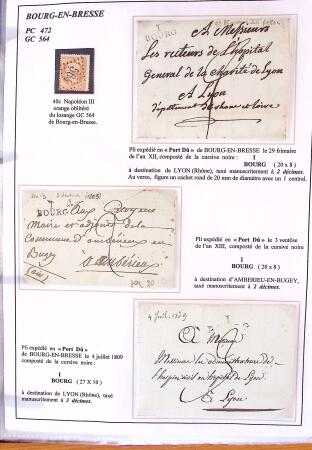 BOURG-EN-BRESSE
PC 472
GC 564
40c Napoléon III
orange oblitéré
du losange GC 564
de Bourg-en-Bresse.
1
BOURG
A Messieurs
Les recteurs de l'hopital
General de la charité de Lyon
A Lyon
département de rhone et loire
Pli expédié en « Port Dû » de BOURG-EN-BRESSE le 29 frimaire
de l'an XII, composé de la cursive noire :
I
BOURG (20 x 8)
à destination de LYON (Rhône), taxé manuscritement à 2 décimes.
Au verso, figure un cachet rond de 20 mm de diamètre avec un 1 central.
BOURG
Aux Citoyens
Maire et adjoint de la
Commune d'amberieux en
Bugey
(ain)
a ambérieux
Pli expédié en « Port Dû »
de BOURG-EN-BRESSE le 3 ventôse
de l'an XIII, composé de la cursive noire :
I
BOURG (20 x 8)
à destination d'AMBERIEU-EN-BUGEY,
taxé manuscritement à 2 décimes.
4 Juil. 1809
A Messieurs
Messieurs les administrateurs de
Lyon
A Lyon
Pli expédié en « Port Dû »
de BOURG-EN-BRESSE le 4 juillet 1809
composé de la cursive noire :
I
BOURG (27 X 10)
à destination de LYON (Rhône), taxé
manuscritement à 3 décimes.